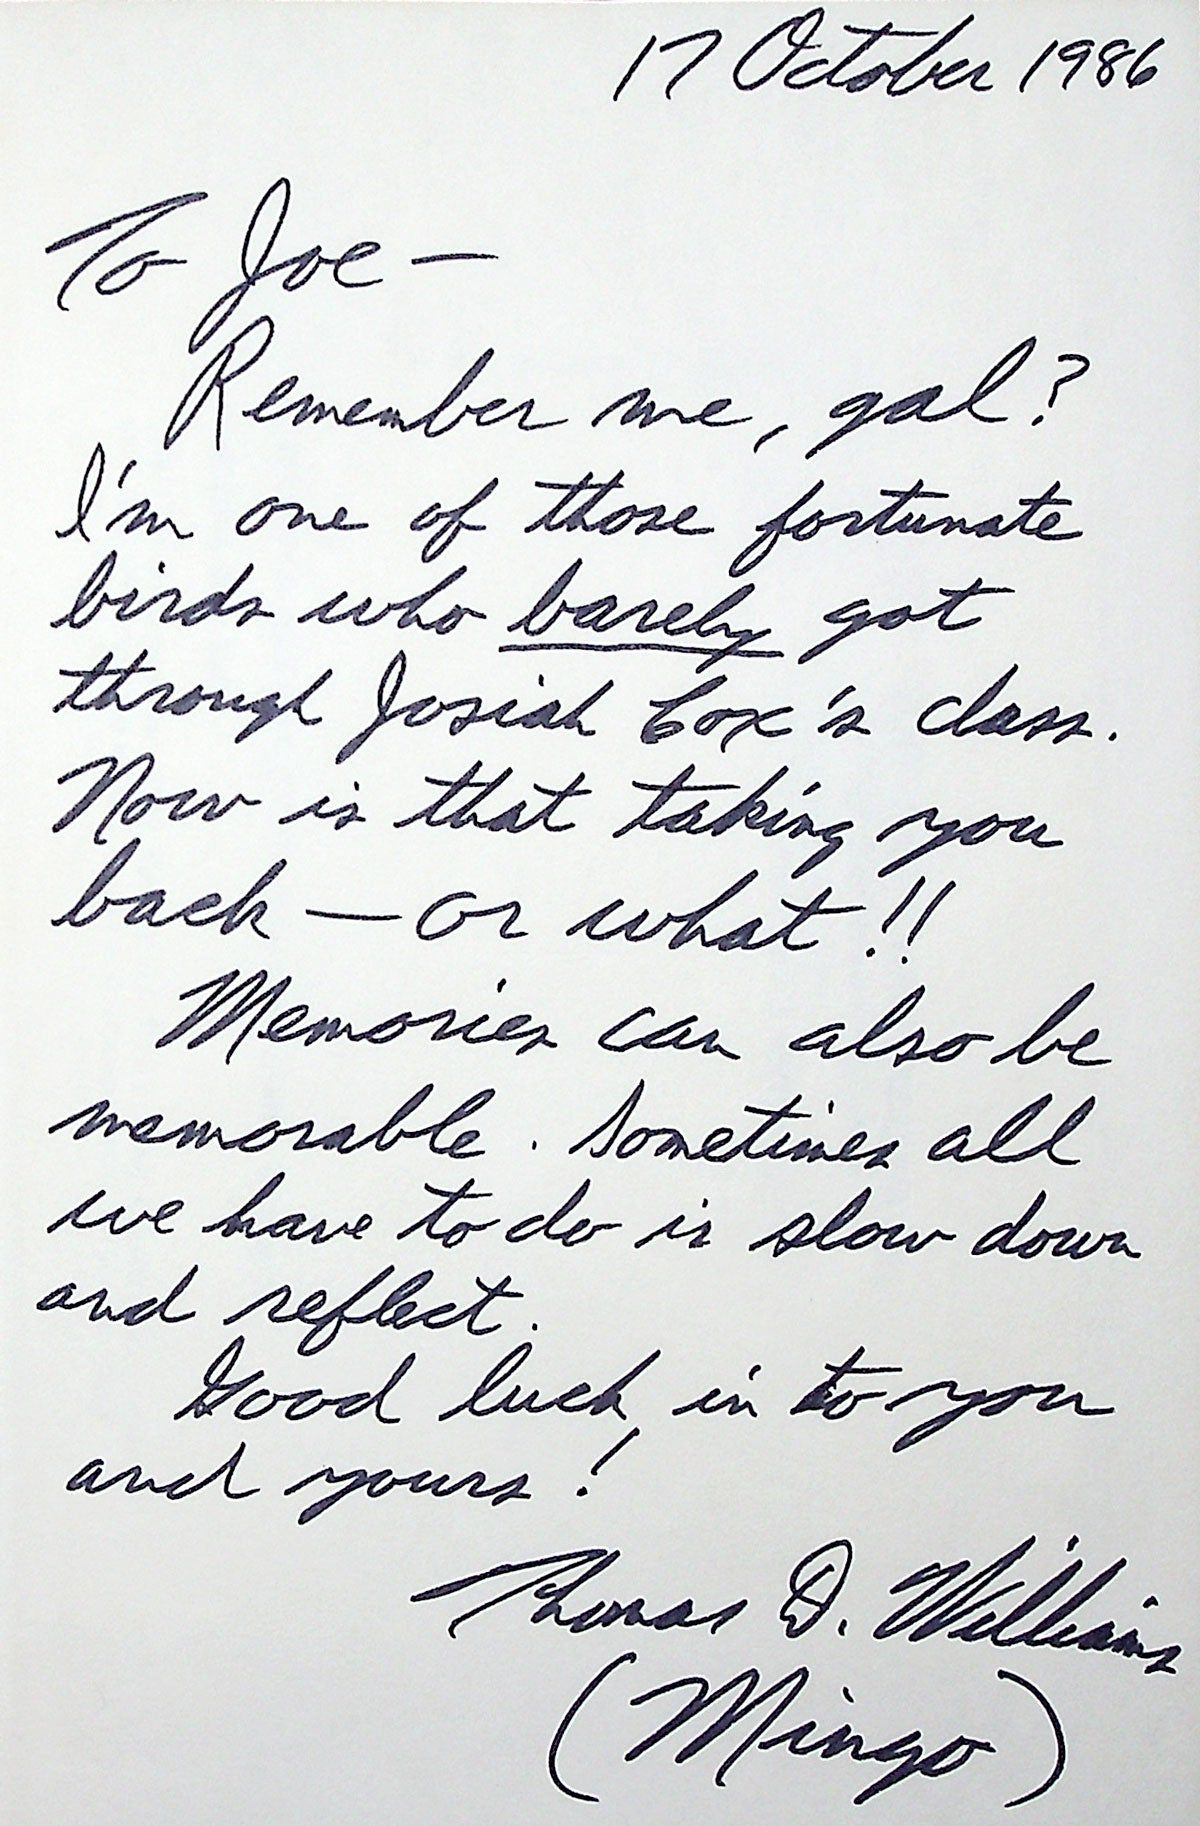 17 October 1986
To Joe —
Remember me, gal?
I'm one of those fortunate
birds who barely got
through Josiah Cox's class.
Now is that taking you
back — or what!!
Memories can also be
memorable. Sometimes all
we have to do is slow down
and reflect.
Good luck, in to you
and yours!
Thomas D. Williams
(Mingo)